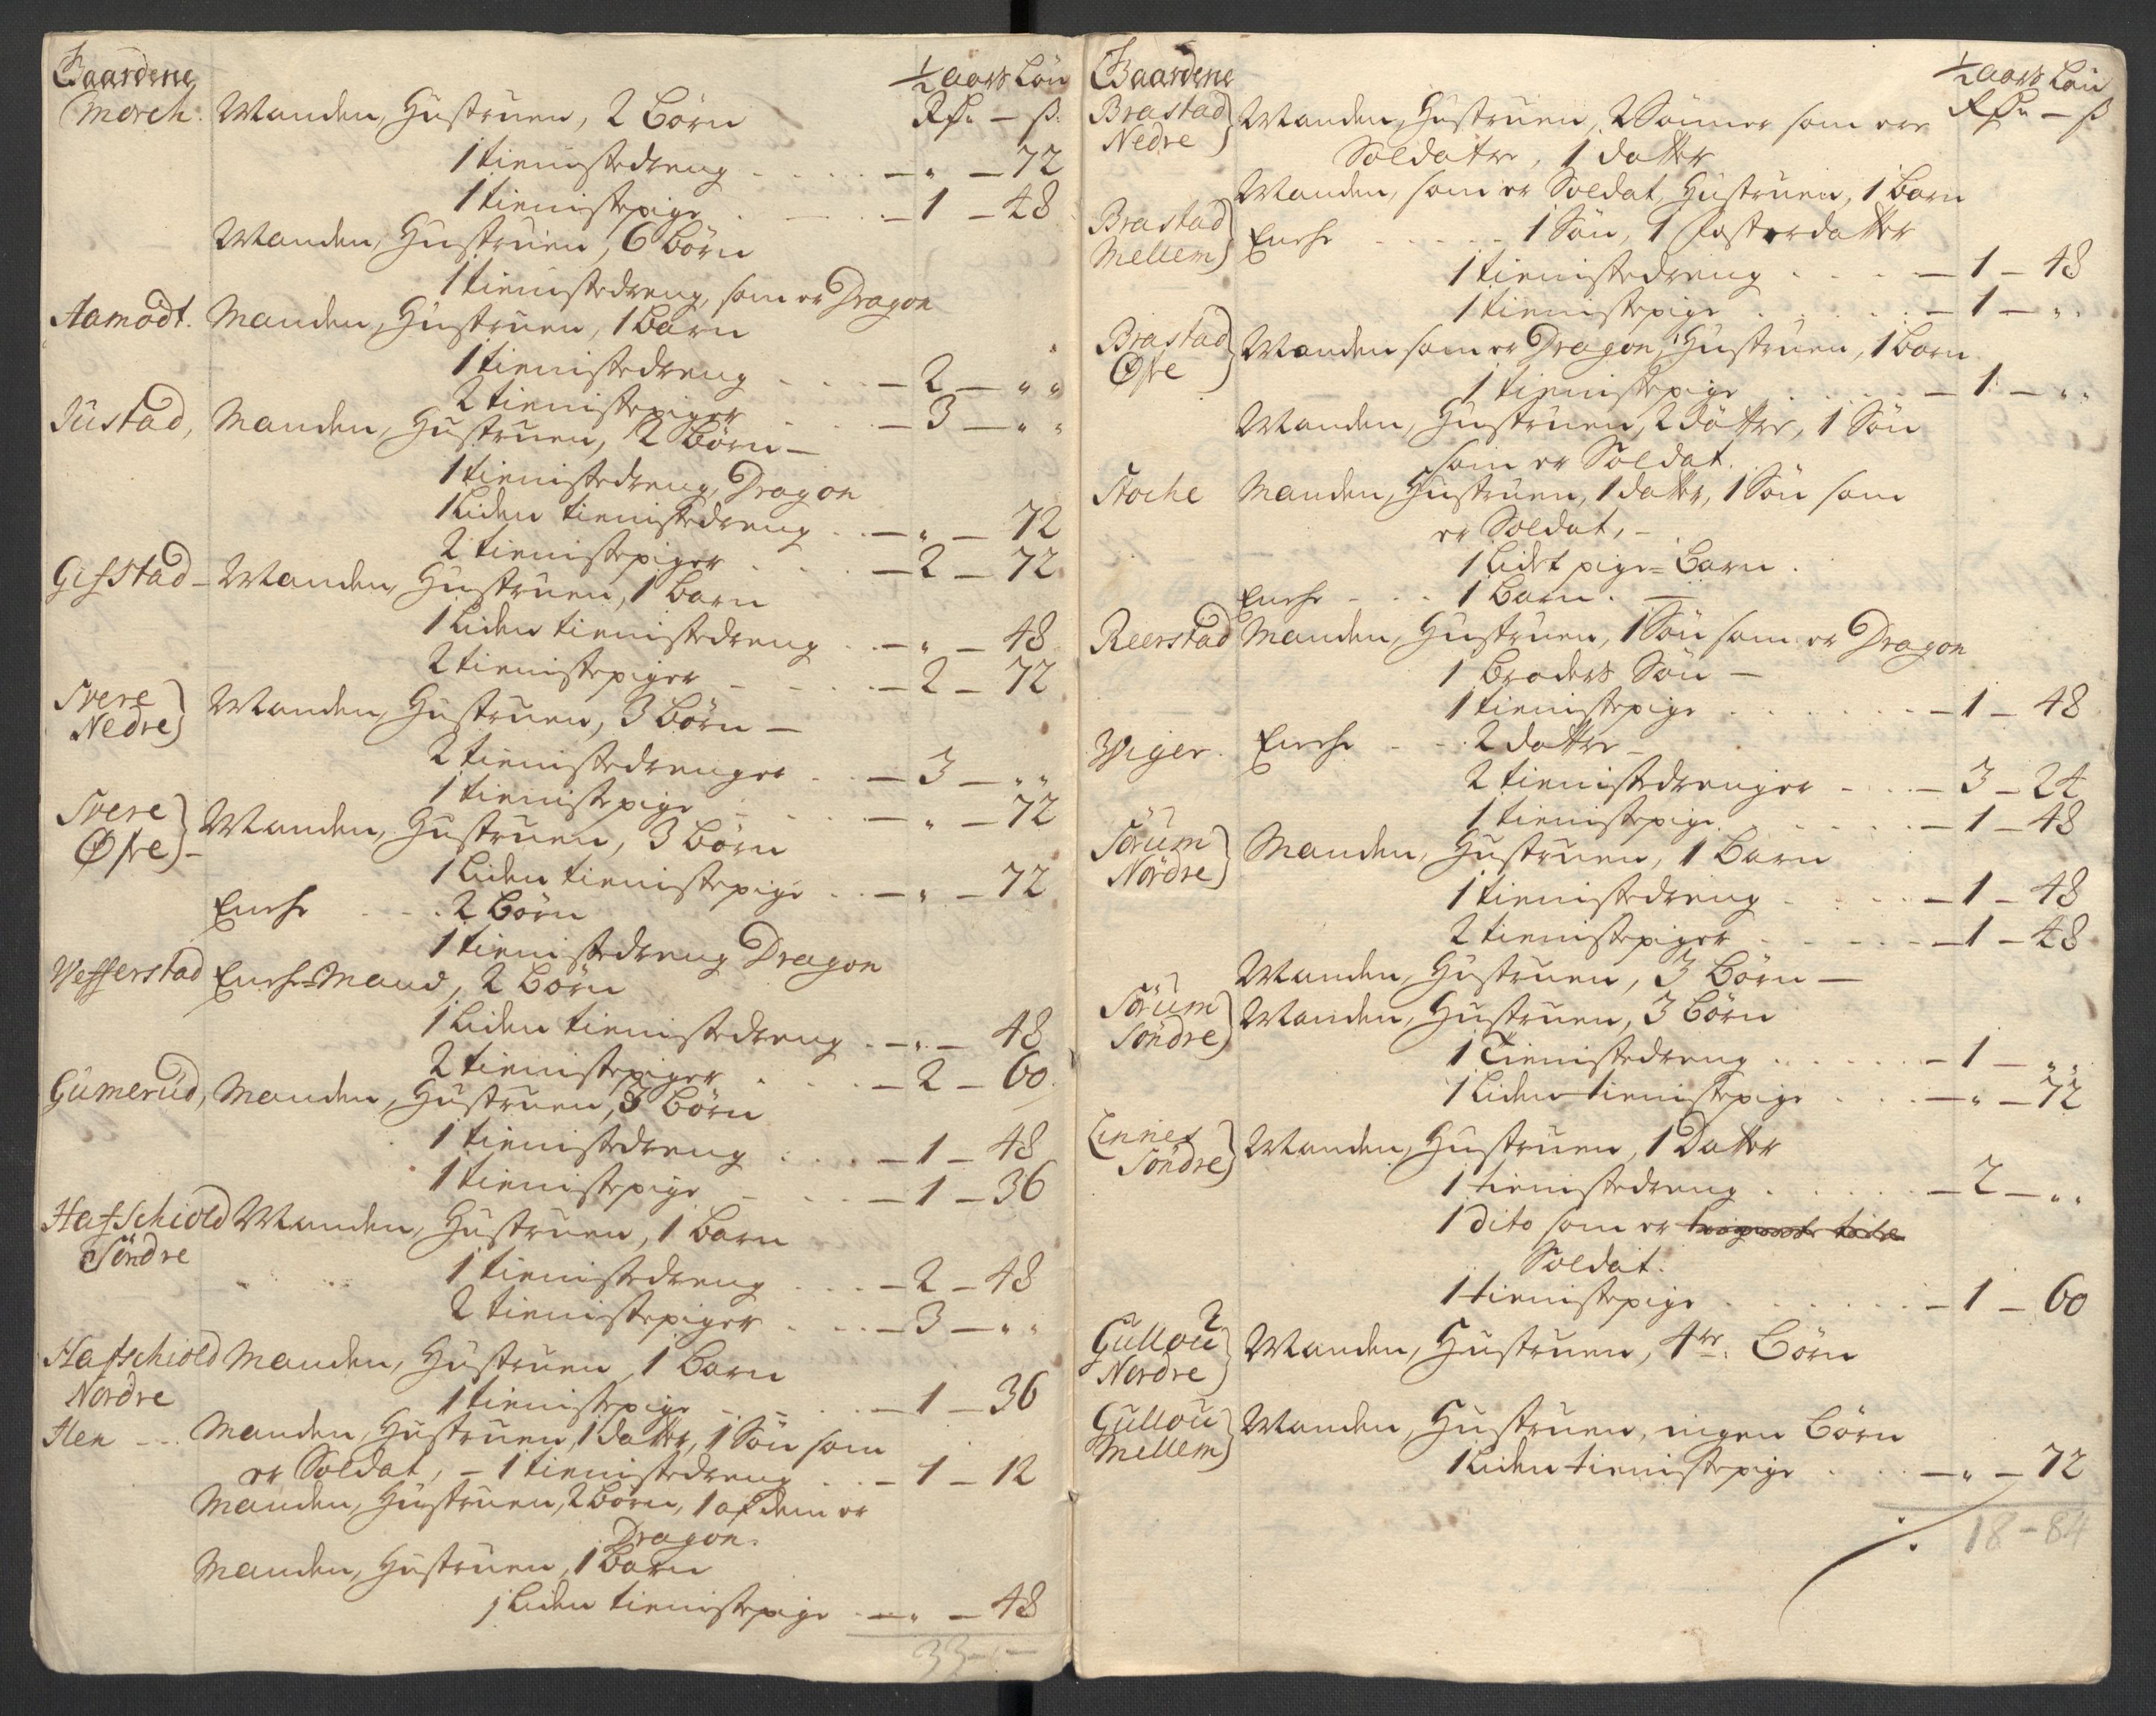 Gaardene
½ aars Løn
Rdr. – s.
Morch. Manden, Hustruen, 2 börn
1 tienistedreng . . . . – " – 72
1 tienistepige . . . – 1 – 48
Manden, Hustruen, 6 börn
1 tienistedreng, som er Dragon
Aamodt. Manden, Hustruen, 1 barn
1 tienistedreng . . . – 2 – " "
2 tienistepiger . . . – 3 – " "
Justad, Manden, Hustruen, 2 börn –
1 tienistedreng, Dragon
1 liden tienistedreng . . – " – 72
2 tienistepiger . . . . – 2 – 72
Gisstad – Manden, Hustruen, 1 barn
1 liden tienistedreng . . – " – 48
2 tienistepiger . . . – 2 – 72
Svere Nedre) Manden, Hustruen, 3 börn –
2 tienistedrenger . . – 3 – " "
1 tienistepige . . . – " – 72
Svere Øfre) – Manden, Hustruen, 3 börn
1 liden tienistepige . . – " – 72
Enche . . . 2 börn
1 tienistedreng Dragon
Vesserstad Enche-Mand, 2 börn
1 liden tienistedreng . – " – 48
2 tienistepiger . . . – 2 – 60.
Gumerud, Manden, Hustruen, 3 börn
1 tienistedreng . . . . – 1 – 48
1 tienistepige – . . . – 1 – 36
Hafschiold Manden, Hustruen, 1 barn
Söndre
1 tienistedreng . . . – 2 – 48
2 tienistepiger . . . – 3 – " "
Hafschiold Manden, Hustruen, 1 barn
Nordre
1 tienistepige – – . . – 1 – 36
Hen – . . Manden, Hustruen, 1 datter, 1 Sön som
er Soldat, – 1 tienistedreng . . – 1 – 12
Manden, Hustruen, 2 börn, 1 af dem er
Dragon.
Manden, Hustruen, 1 barn
1 liden tienistepige . – " – 48
33 – " –
Gaardene
½ aars Løn
Rdr. – s
Brastad Nedre) Manden, Hustruen, 2 Sönner som ere
Soldater, 1 datter
Manden, som er Soldat, Hustruen, 1 barn
Brastad Mellem) Enche . . . . . 1 Sön, 1 fosterdatter
1 tienistedreng . . . . – 1 – 48
1 tienistepige . . . . . – 1 – " "
Brastad Øfre) Manden som er Dragon, Hustruen, 1 barn
1 tienistepige . . . . – 1 – " "
Manden, Hustruen, 2 döttre, 1 Sön
som er Soldat.
Stoche Manden, Hustruen, 1 datter, 1 Sön som
er Soldat, –
1 lidet pige-barn.
Enche – . . 1 barn. –
Reerstad Manden, Hustruen, 1 Sön som er Dragon
1 broders Sön –
1 tienistepige . . . . . . – 1 – 48
Viger. Enche – – . 2 dattre –
2 tienistedrenger – . . – 3 – 24
1 tienistepige . . . . . – 1 – 48
Sörum Nördre) Manden, Hustruen, 1 barn
1 tienistedreng . . . . – 1 – 48
2 tienistepiger . . . . – 1 – 48
Manden, Hustruen, 3 börn –
Sörum Söndre) Manden, Hustruen, 3 börn
1 tienistedreng . . . . . – 1 – " "
1 liden tienistepige . . . – " – 72
Linnes Söndre) Manden, Hustruen, 1 Datter
1 tienistedreng . . . . . – 2 – " "
1 dito som er
Soldat.
1 tienistepige . . . . . . – 1 – 60
Gullou Nordre) Manden, Hustruen, 4re. börn
Gullou Mellem) Manden, Hustruen, ingen börn
1 liden tienistepige . . . – " – 72
18 – 84